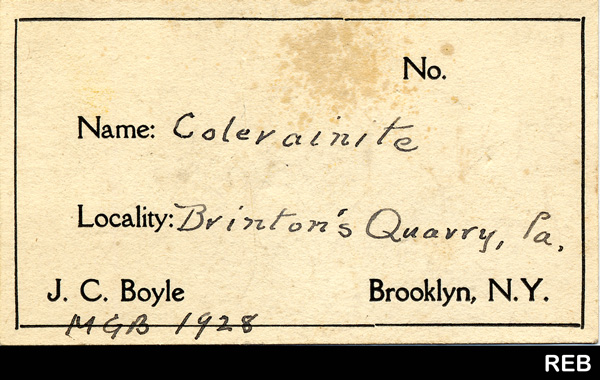 No.
Name: Colerainite
Locality: Brinton's Quarry, Pa.
J. C. Boyle Brooklyn, N.Y.
MGB 1928
REB